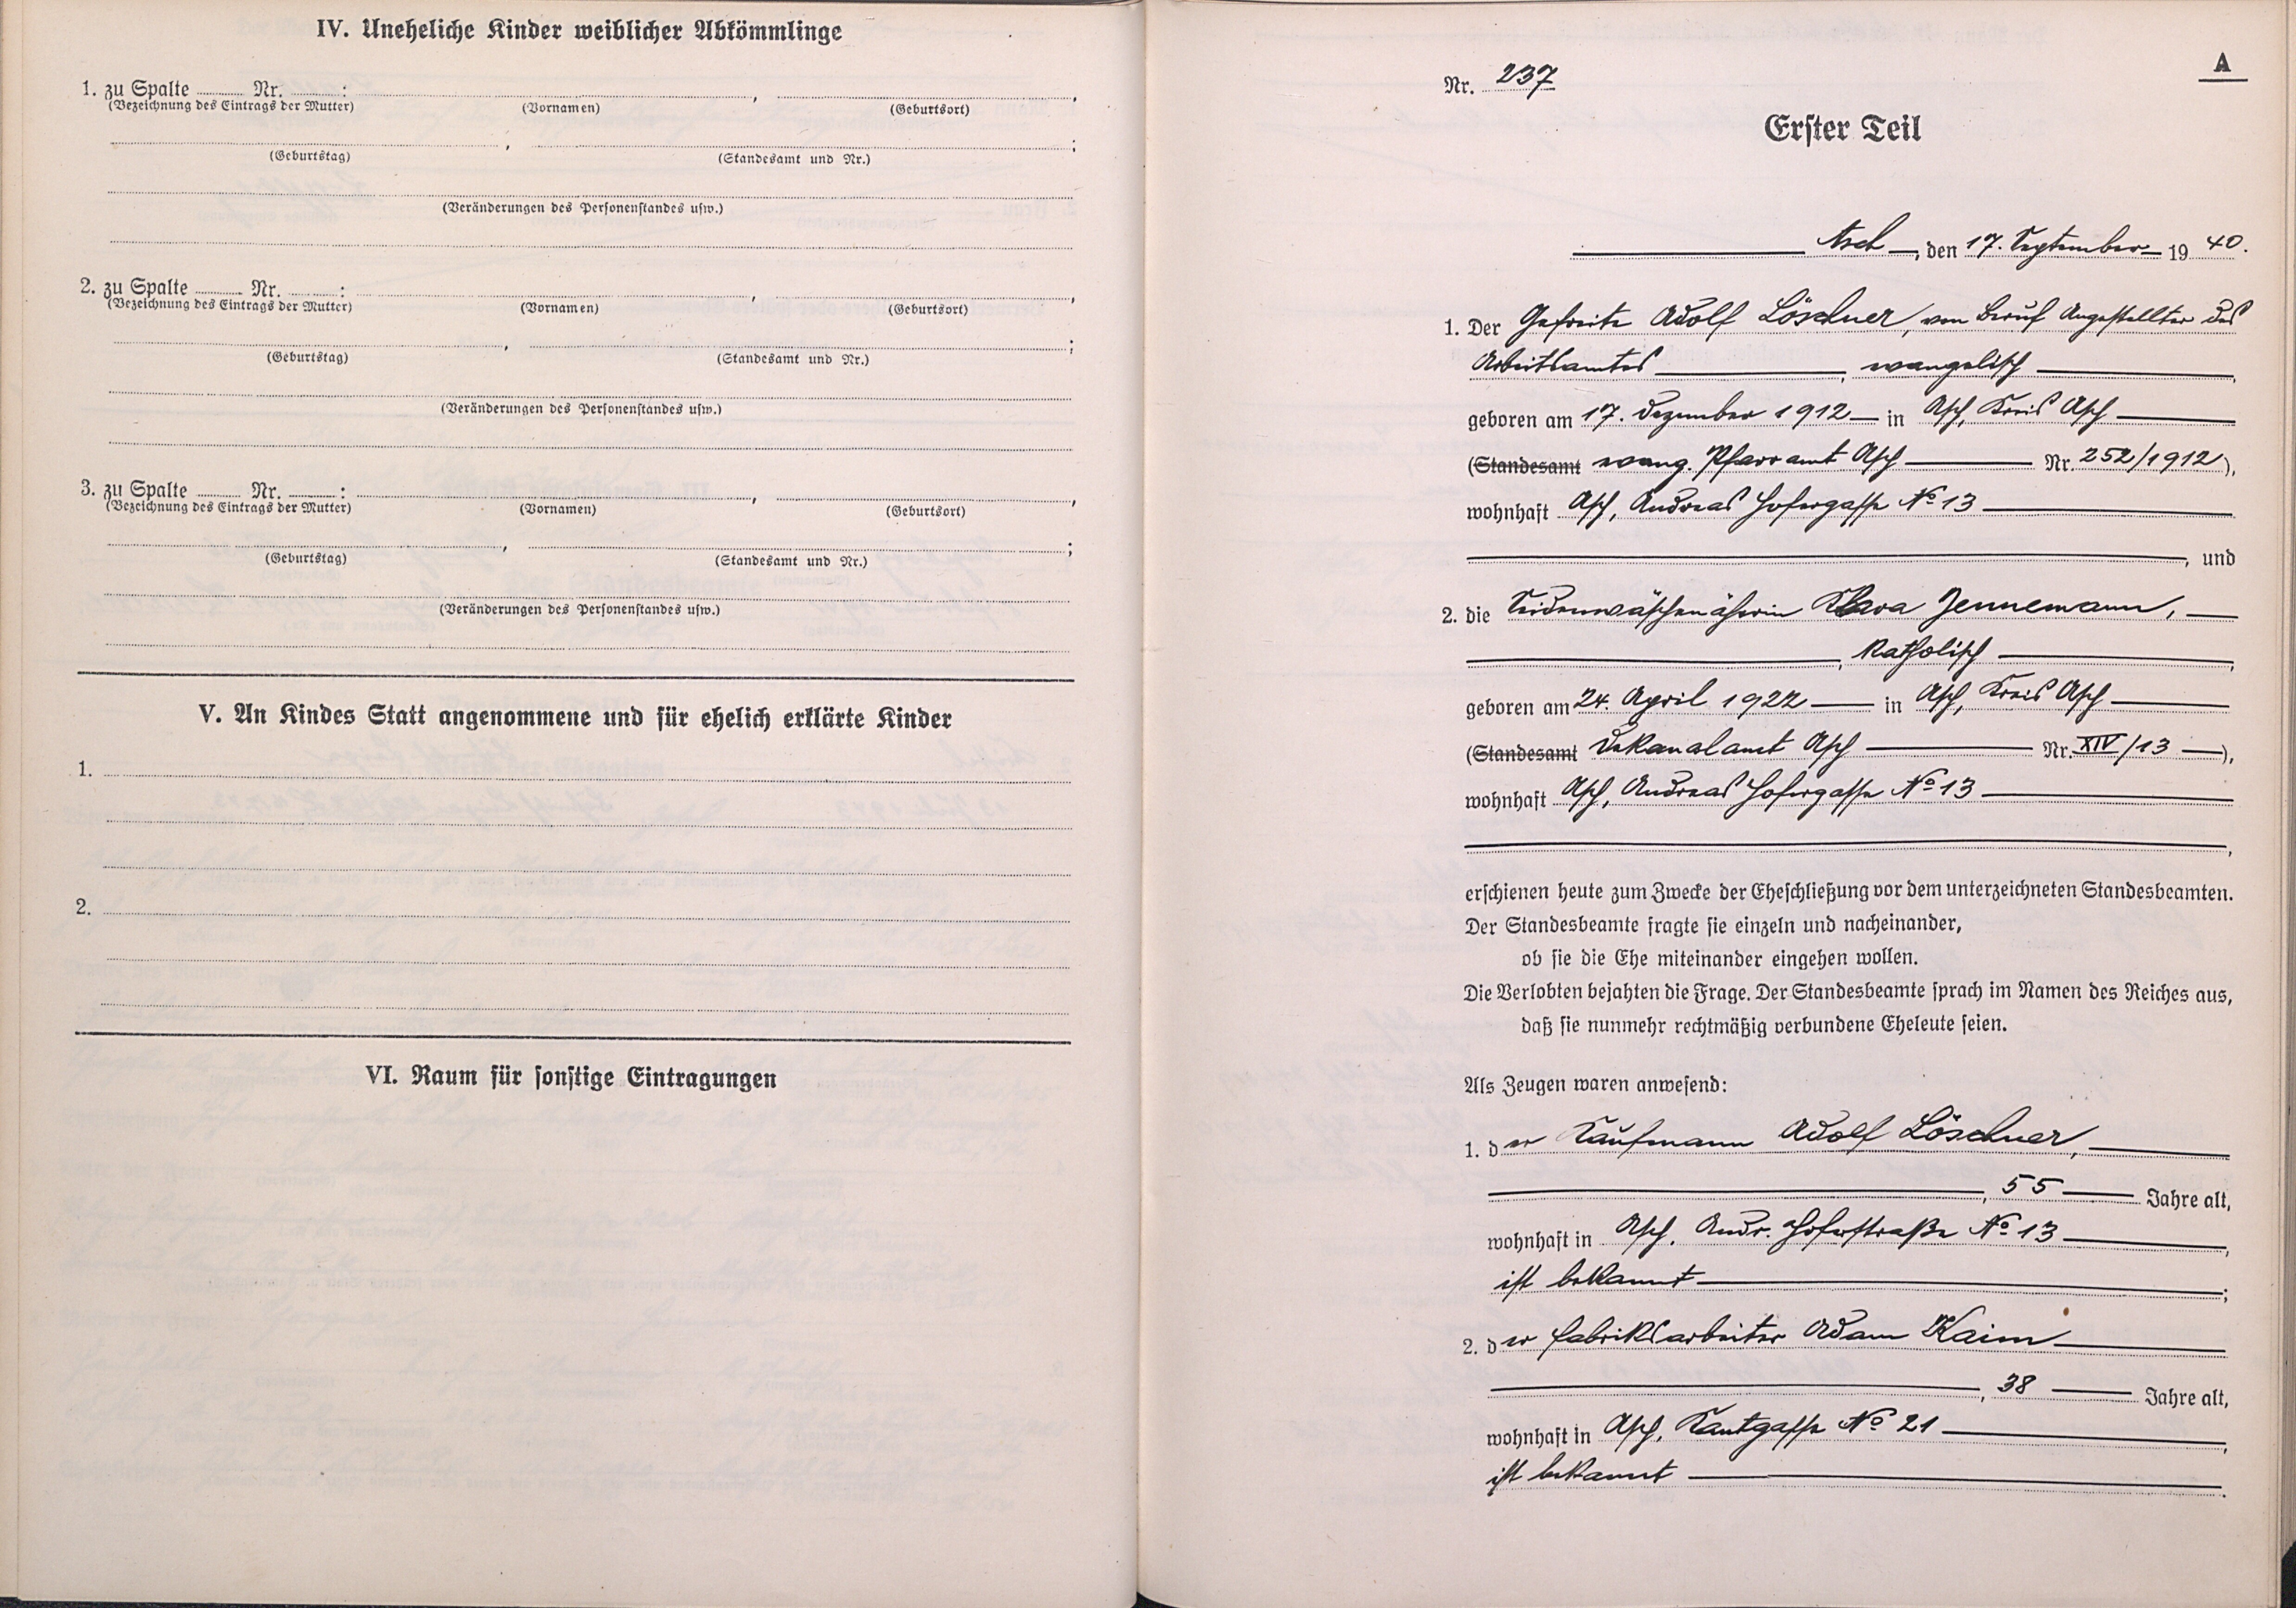 IV. Uneheliche Kinder weiblicher Abkömmlinge
1. zu Spalte ........ Nr. ........ : , ,
(Bezeichnung des Eintrags der Mutter) (Vornamen) (Geburtsort)
, ;
(Geburtstag) (Standesamt und Nr.)
(Veränderungen des Personenstandes usw.)
2. zu Spalte ........ Nr. ........ : , ,
(Bezeichnung des Eintrags der Mutter) (Vornamen) (Geburtsort)
, ;
(Geburtstag) (Standesamt und Nr.)
(Veränderungen des Personenstandes usw.)
3. zu Spalte ........ Nr. ........ : , ,
(Bezeichnung des Eintrags der Mutter) (Vornamen) (Geburtsort)
, ;
(Geburtstag) (Standesamt und Nr.)
(Veränderungen des Personenstandes usw.)
V. An Kindes Statt angenommene und für ehelich erklärte Kinder
1.
2.
VI. Raum für sonstige Eintragungen
A
Nr. 237
Erster Teil
Asch, den 17. September 1940.
1. Der Gefreite Adolf Löschner, von Beruf Angestellter des
Arbeitsamtes, evangelisch,
geboren am 17. Dezember 1912 in Asch, Kreis Asch
(Standesamt evang. Pfarramt Asch Nr. 252/1912),
wohnhaft Asch, Andreas Hofergasse No 13
, und
2. die Seidenwäschenäherin Klara Jennemann,
, katholisch,
geboren am 24. April 1922 in Asch, Kreis Asch
(Standesamt Dekanalamt Asch Nr. XIV/13),
wohnhaft Asch, Andreas Hofergasse No 13
,
erschienen heute zum Zwecke der Eheschließung vor dem unterzeichneten Standesbeamten.
Der Standesbeamte fragte sie einzeln und nacheinander,
ob sie die Ehe miteinander eingehen wollen.
Die Verlobten bejahten die Frage. Der Standesbeamte sprach im Namen des Reiches aus,
daß sie nunmehr rechtmäßig verbundene Eheleute seien.
Als Zeugen waren anwesend:
1. der Kaufmann Adolf Löschner,
, 55 Jahre alt,
wohnhaft in Asch, Andr. Hoferstraße No 13,
ist bekannt;
2. der Fabriksarbeiter Adam Kaim
, 38 Jahre alt,
wohnhaft in Asch, Kantgasse No 21,
ist bekannt.